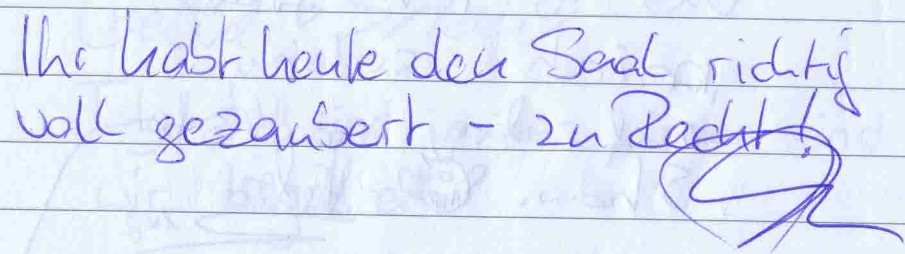 Ihr habt heute den Saal richtig
voll gezaubert - zu Recht!